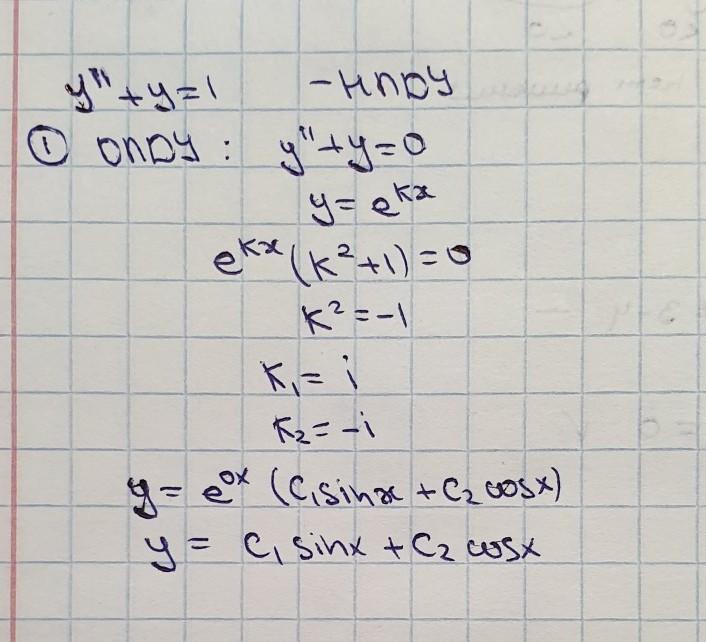 y" + y = 1 - НЛДУ
① ОЛДУ : y" + y = 0
y = e^{kx}
e^{kx} (k² + 1) = 0
k² = -1
k₁ = i
k₂ = -i
y = e^{0x} (C₁ sinx + C₂ cosx)
y = C₁ sinx + C₂ cosx